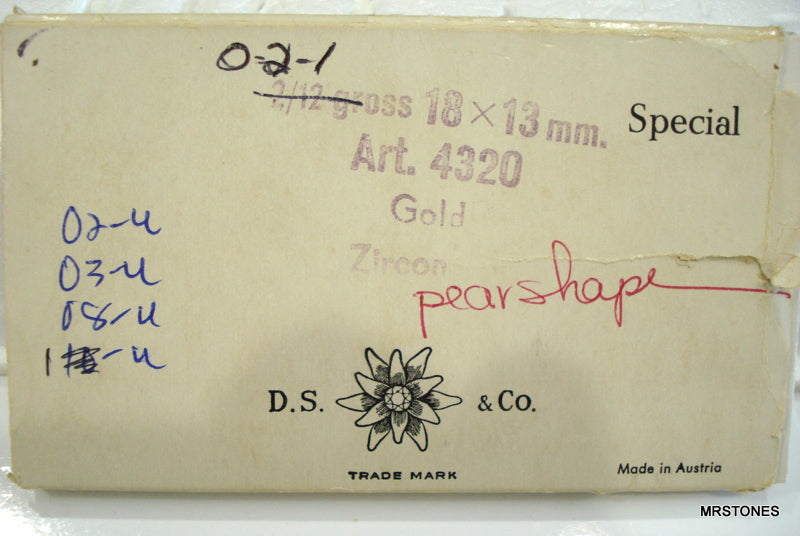 0-2-1
2/12 gross 18×13 mm.
Special
Art. 4320
Gold
Zircon
pearshape
02-u
03-u
08-u
D.S. & Co.
TRADE MARK
Made in Austria
MRSTONES